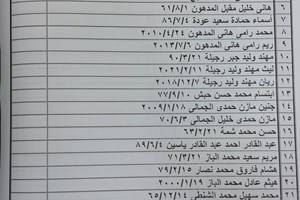 ٦ هانى خليل مقبل المدهون ٦١/٨/١
٧ أسماء حمادة سعيد عودة ٨٦/٧/٤
٨ محمد رامى هانى المدهون ٢٠١٠/٤/٢٤
٩ ريم رامى هانى المدهون ٢٠١٣/٧/٦
١٠ مهند وليد جبر رجيلة ٩٠/٥
١١ ليث مهند وليد رجيلة ٢٠٢١/٢/١١
١٢ ريان مهند وليد رجيلة ٢٠١٨/١٢/٧
١٣ ابتسام محمد حسن حبش ٧٧/٩/١٠
١٤ جنين مازن حمدى الجمالى ٢٠٠٩/١/١٨
١٥ مازن حمدى خليل الجمالى ٧٠/٦/٣
١٦ حسن محمد شمة ٦٣/٢/٢١
١٧ عبد القادر احمد عبد القادر ياسين ٨٩/٦/٤
١٨ مريم سعيد محمد الباز ٧١/٣/٢١
١٩ هشام فاروق محمد نصار ٧٩/٢/١٥
٢٠ هيثم عادل محمد الباز ٢٠٠٠/١/١٩
٢١ محمد سهيل محمد الشنطى ٦٥/١٢/١٤